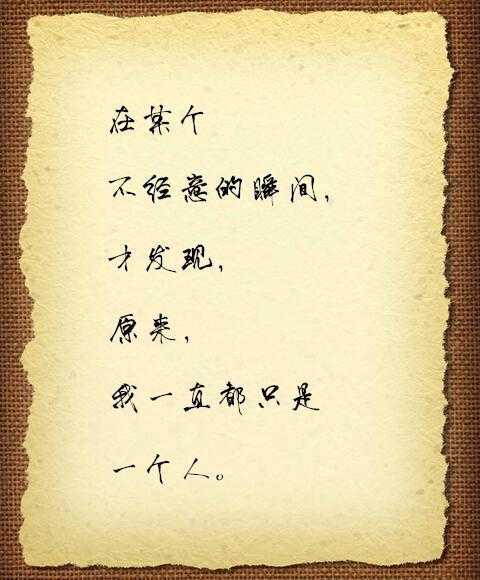 在某个
不经意的瞬间,
才发现,
原来,
我一直都只是
一个人。